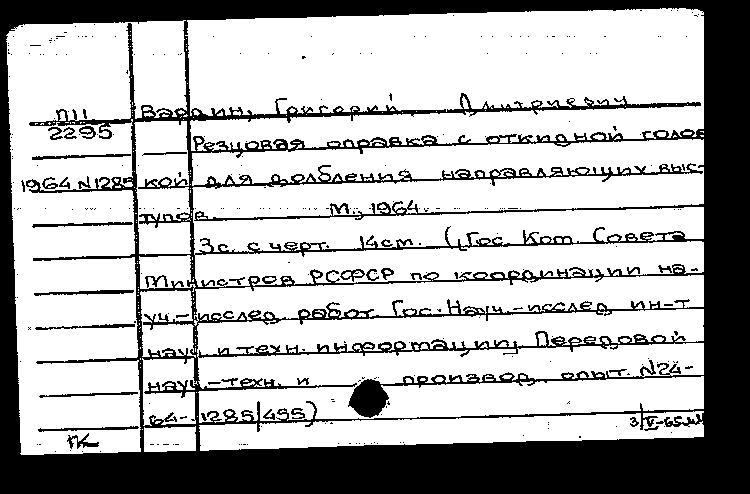 П11 Вардин, Григорий Дмитриевич
2295 Резцовая оправка с откидной голов-
1964 N1285 кой для долбления направляющих выс-
тупов. М., 1964.
3с. с черт. 14см. (Гос. Ком. Совета
Министров РСФСР по координации на-
уч.-исслед. работ. Гос. Науч.-исслед. ин-т
науч. и техн. информации, Передовой
науч.-техн. и производ. опыт. N24-
64-1285/495)
ПК 3/V-65